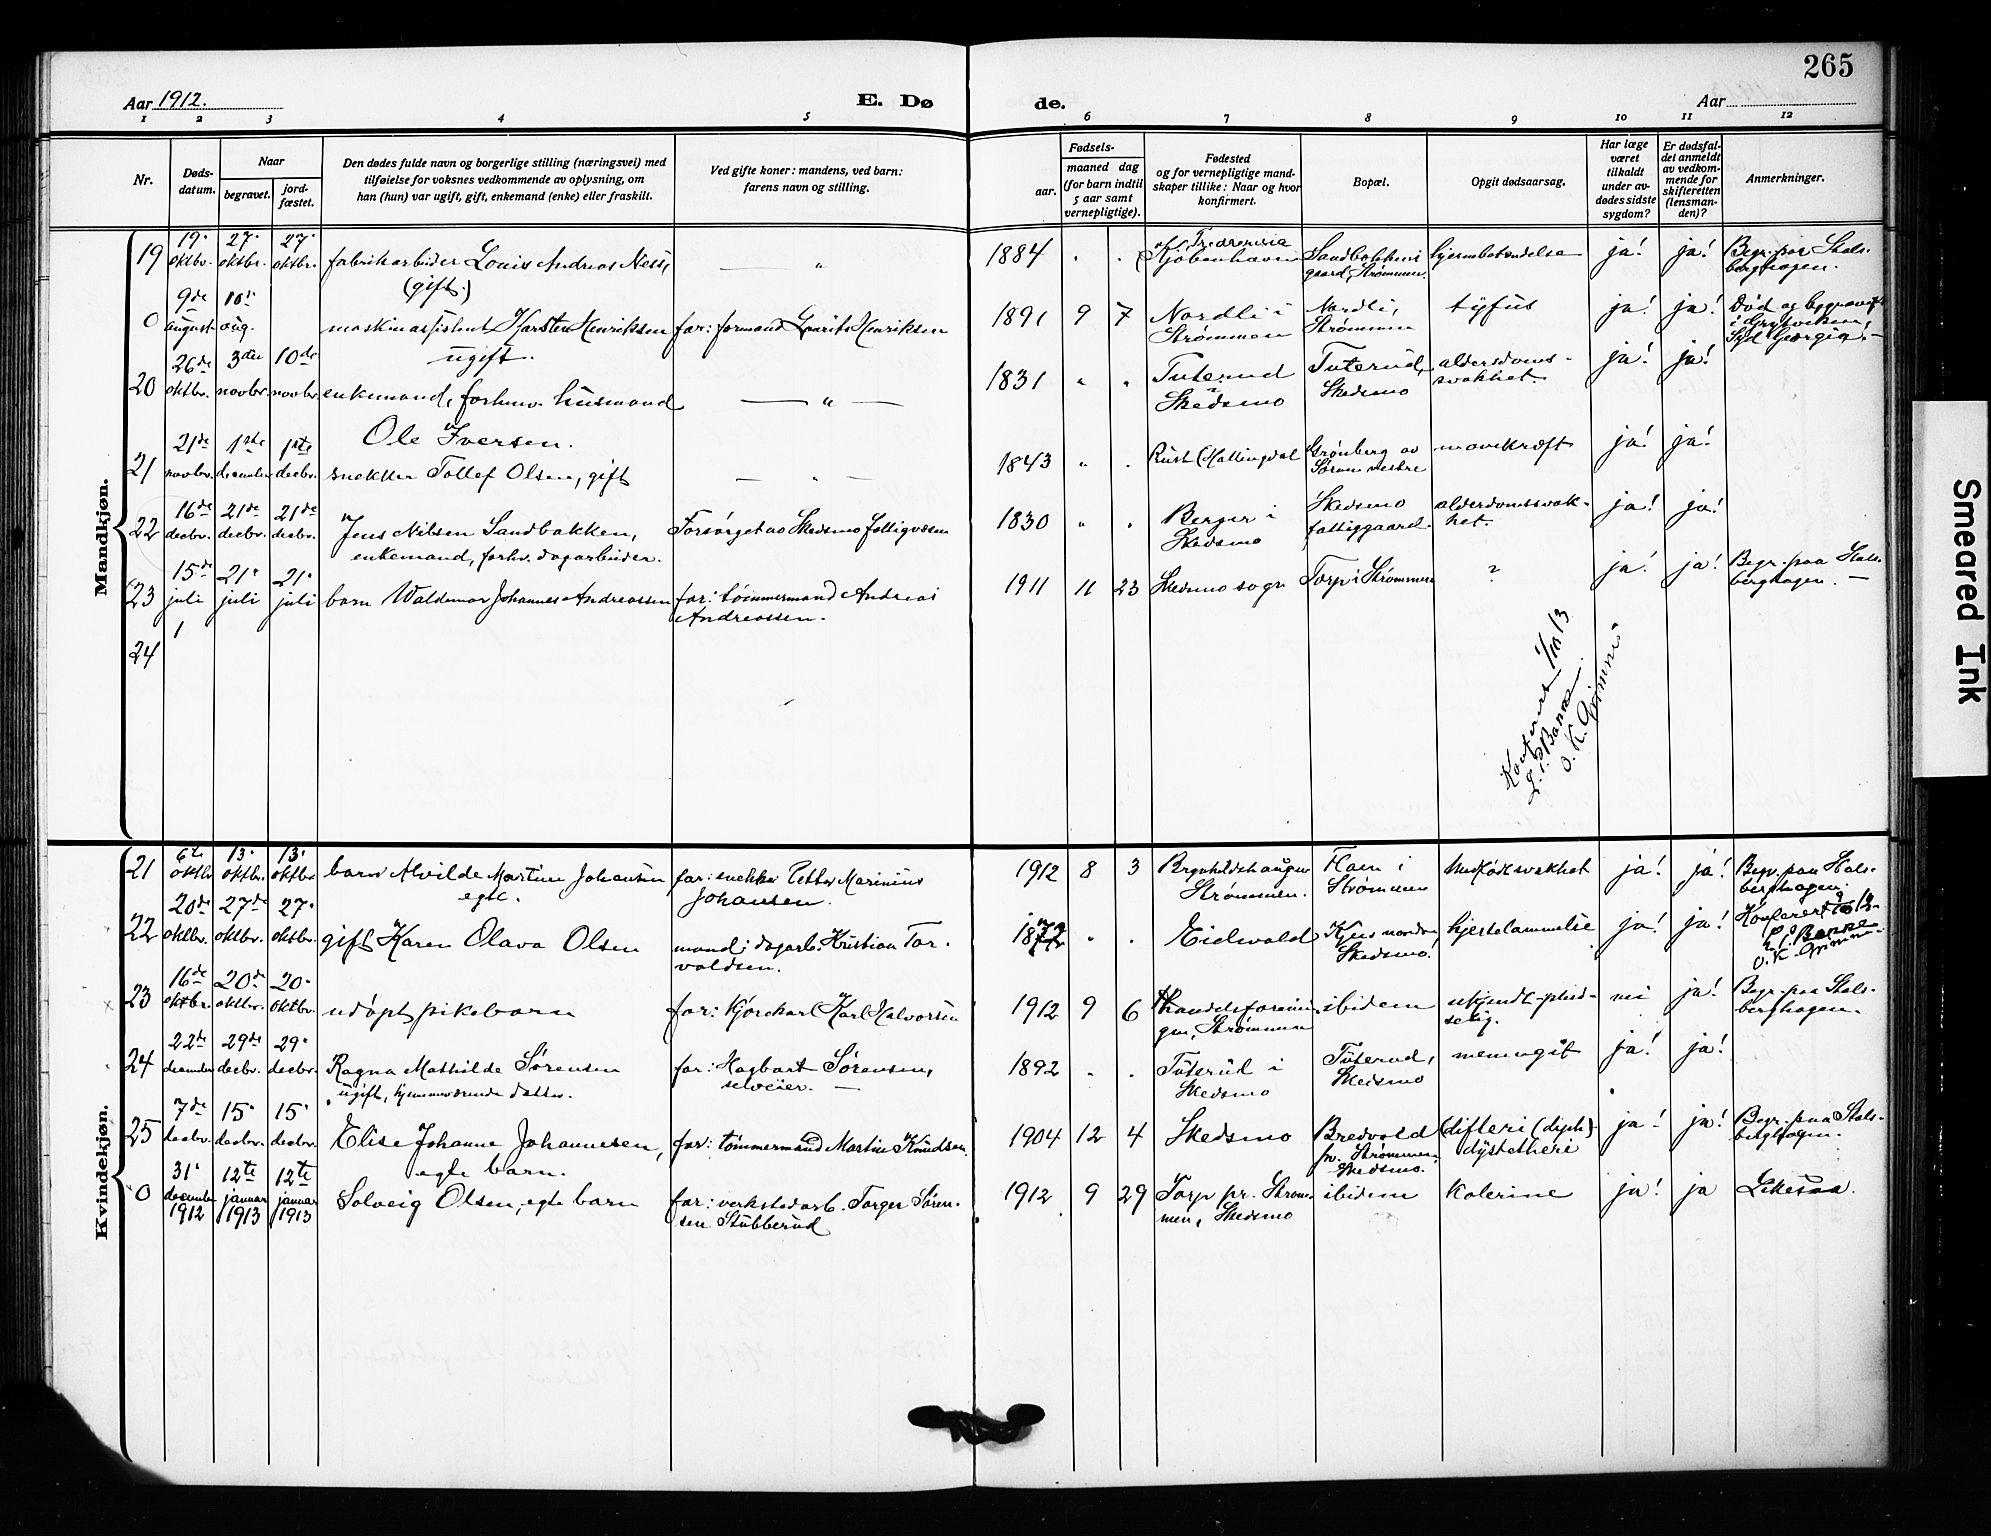 265
Aar 1912.
E. Dø
de.
Aar
1 2 3 4 5 6 7 8 9 10 11 12
Nr.
Døds-
datum.
Naar
begravet.
jord-
fæstet.
Den dødes fulde navn og borgerlige stilling (næringsvei) med
tilføielse for voksnes vedkommende av oplysning, om
han (hun) var ugift, gift, enkemand (enke) eller fraskilt.
Ved gifte koner: mandens, ved barn:
farens navn og stilling.
Fødsels-
aar.
maaned dag
(for barn indtil
5 aar samt
vernepligtige).
Fødested
og for vernepligtige mand-
skaper tillike: Naar og hvor
konfirmert.
Bopæl.
Opgit dødsaarsag.
Har læge
været
tilkaldt
under av-
dødes sidste
sygdom?
Er dødsfal-
det anmeldt
av vedkom-
mende for
skifteretten
(lensman-
den)?
Anmerkninger.
Mandkjøn.
19 19. oktbr. 27. oktbr. 27. oktbr. fabrikarbeider Louis Andreas Ness, (gift.) — " 1884 " " Fredericia Kjøbenhavn Sandbakken i gaard, Strømmen hjernebetændelse ja! ja! Begr. paa Stals-
berghagen.
0 9de august 10. aug. maskinassistent Karsten Henriksen ugift. far: formand Laurits Henriksen 1891 9 7 Nordli i Strømmen Nordli, Strømmen tyfus ja! ja! Død og begravet i Grytviken, Syd Georgia.
20 26de oktbr. 3die novbr. 10de novbr. enkemand, forhenv. husmand Ole Iversen. — " — 1831 " " Tuterud i Skedsmo Tuterud, Skedsmo alderdoms-
svakhet. ja! ja!
21 21de novbr. 1ste december 1ste decbr. snekker Tollef Olsen, gift — " — 1843 " " Rust (Hallingdal Grønberg av Sørum vestre mavekræft ja! ja!
22 16de decbr. 21de decbr. 21de decbr. Jens Nilsen Sandbakken, enkemand, forhv. dagarbeider. Forsørget av Skedsmo fattigvæsen 1830 " " Berger i Skedsmo Skedsmo fattiggaard. alderdomssvak-
het. ja! ja!
23 15de juli 21. juli 21. juli barn Waldemar Johannes Andreassen far: tømmermand Andreas Andreassen. 1911 11 23 Skedsmo sogn Torp i Strømmen ? ja! ja! Begr. paa Stals-
berghagen. —
24
Konferert 1/10 13
O. K. Grimnes
Kvindekjøn.
21 6te oktbr 13. oktbr. 13. oktbr. barn Alvilde Martine Johansen egte. far: snekker Petter Marinius Johansen. 1912 8 3 Brynhildshaugen Strømmen. Flaen i Strømmen medfødt svakhet ja! ja! Begr. paa Stals-
berghagen.
22 20de oktbr. 27de oktbr. 27. oktbr. gift Karen Olava Olsen mand: dagarb. Kristian Tor-
valdsen. 1872 " " Eidsvold Kjus nordre, Skedsmo. hjertelammelse ja! ja! Konferert
O. K. Grimnes
23 16de oktbr. 20de oktbr. 20. oktbr. udøpt pikebarn far: kjørekarl Karl Halvorsen 1912 9 6 Handelsforenin-
gen, Strømmen ibidem ukjendt – pludselig. nei ja! Begr. paa Stals-
berghagen.
24 22de december 29de decbr. 29. decbr. Ragna Mathilde Sørensen ugift, hjemmeværende datter. far: Hagbart Sørensen, selveier. — 1892 " " Tuterud i Skedsmo Tuterud, Skedsmo meningit ja! ja!
25 7de decbr. 15. decbr. 15. decbr. Elise Johanne Johannesen, egte barn. far: tømmermand Martin Knudsen 1904 12 4 Skedsmo Bredvold pr. Strømmen, Skedsmo. difteri (diph) dystetheri ja! ja! Begr. paa Stals-
berghagen.
0 31. december 1912 12te januar 1913 12te januar 1913 Solveig Olsen, egte barn far: verkstedarb. Torger Søren-
sen Stubberud 1912 9 29 Torp pr. Strøm-
men, Skedsmo ibidem Kolerine ja! ja Likesaa.
Smeared Ink